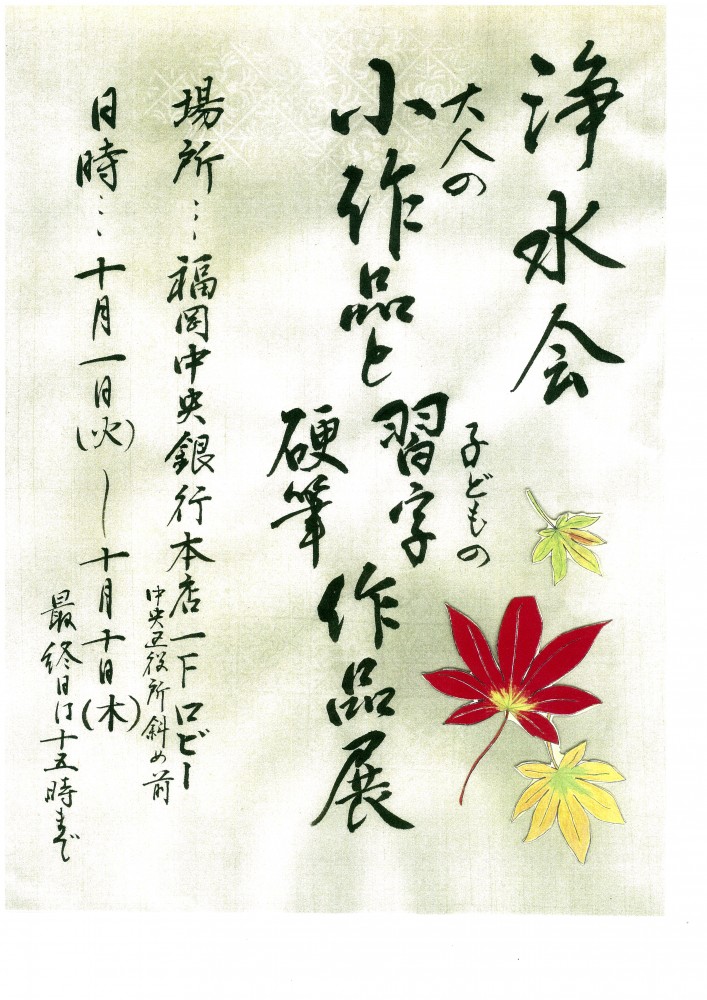 浄水会
大人の
小作品と
子どもの
習字
硬筆
作品展
場所…福岡中央銀行本店一Fロビー
中央区役所斜め前
日時…十月一日(火)～十月十日(木)
最終日は十五時まで